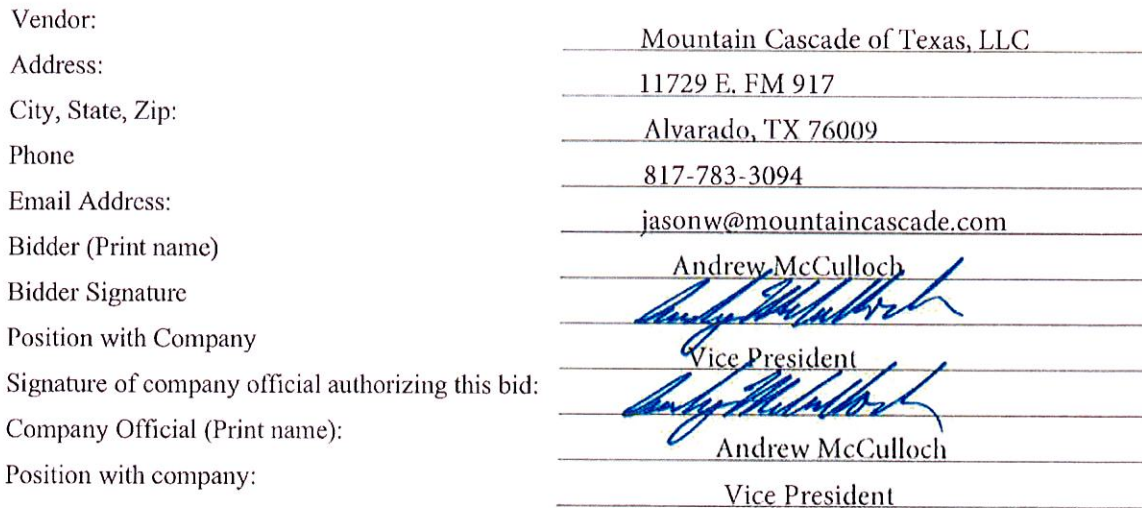 Vendor: Mountain Cascade of Texas, LLC
Address: 11729 E. FM 917
City, State, Zip: Alvarado, TX 76009
Phone 817-783-3094
Email Address: jasonw@mountaincascade.com
Bidder (Print name) Andrew McCulloch
Bidder Signature Andy McCulloch
Position with Company Vice President
Signature of company official authorizing this bid: Andy McCulloch
Company Official (Print name): Andrew McCulloch
Position with company: Vice President